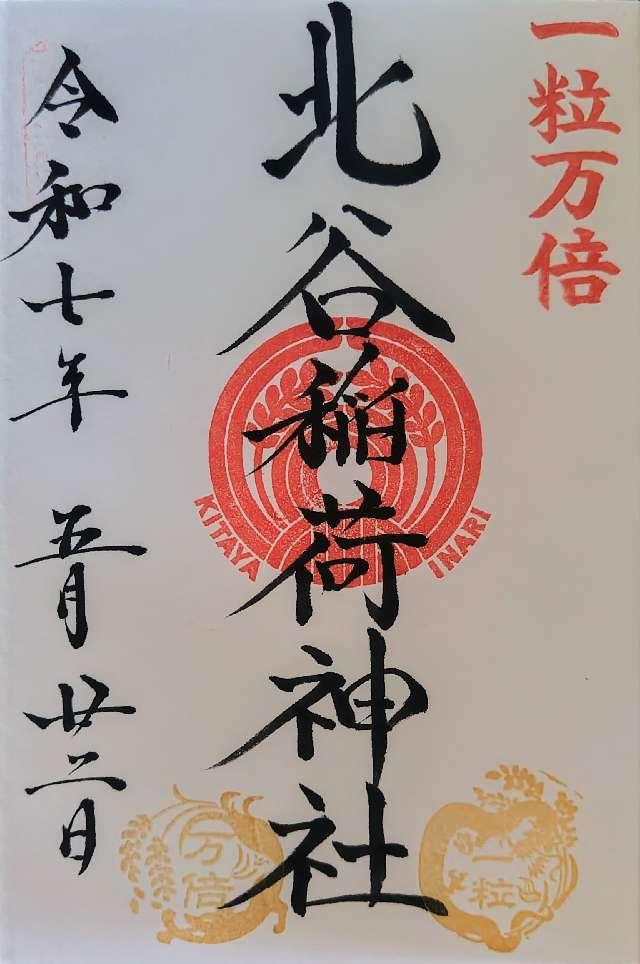 一粒万倍
北谷稲荷神社
KITAYA INARI
令和七年 五月 廿二日
一粒
万倍